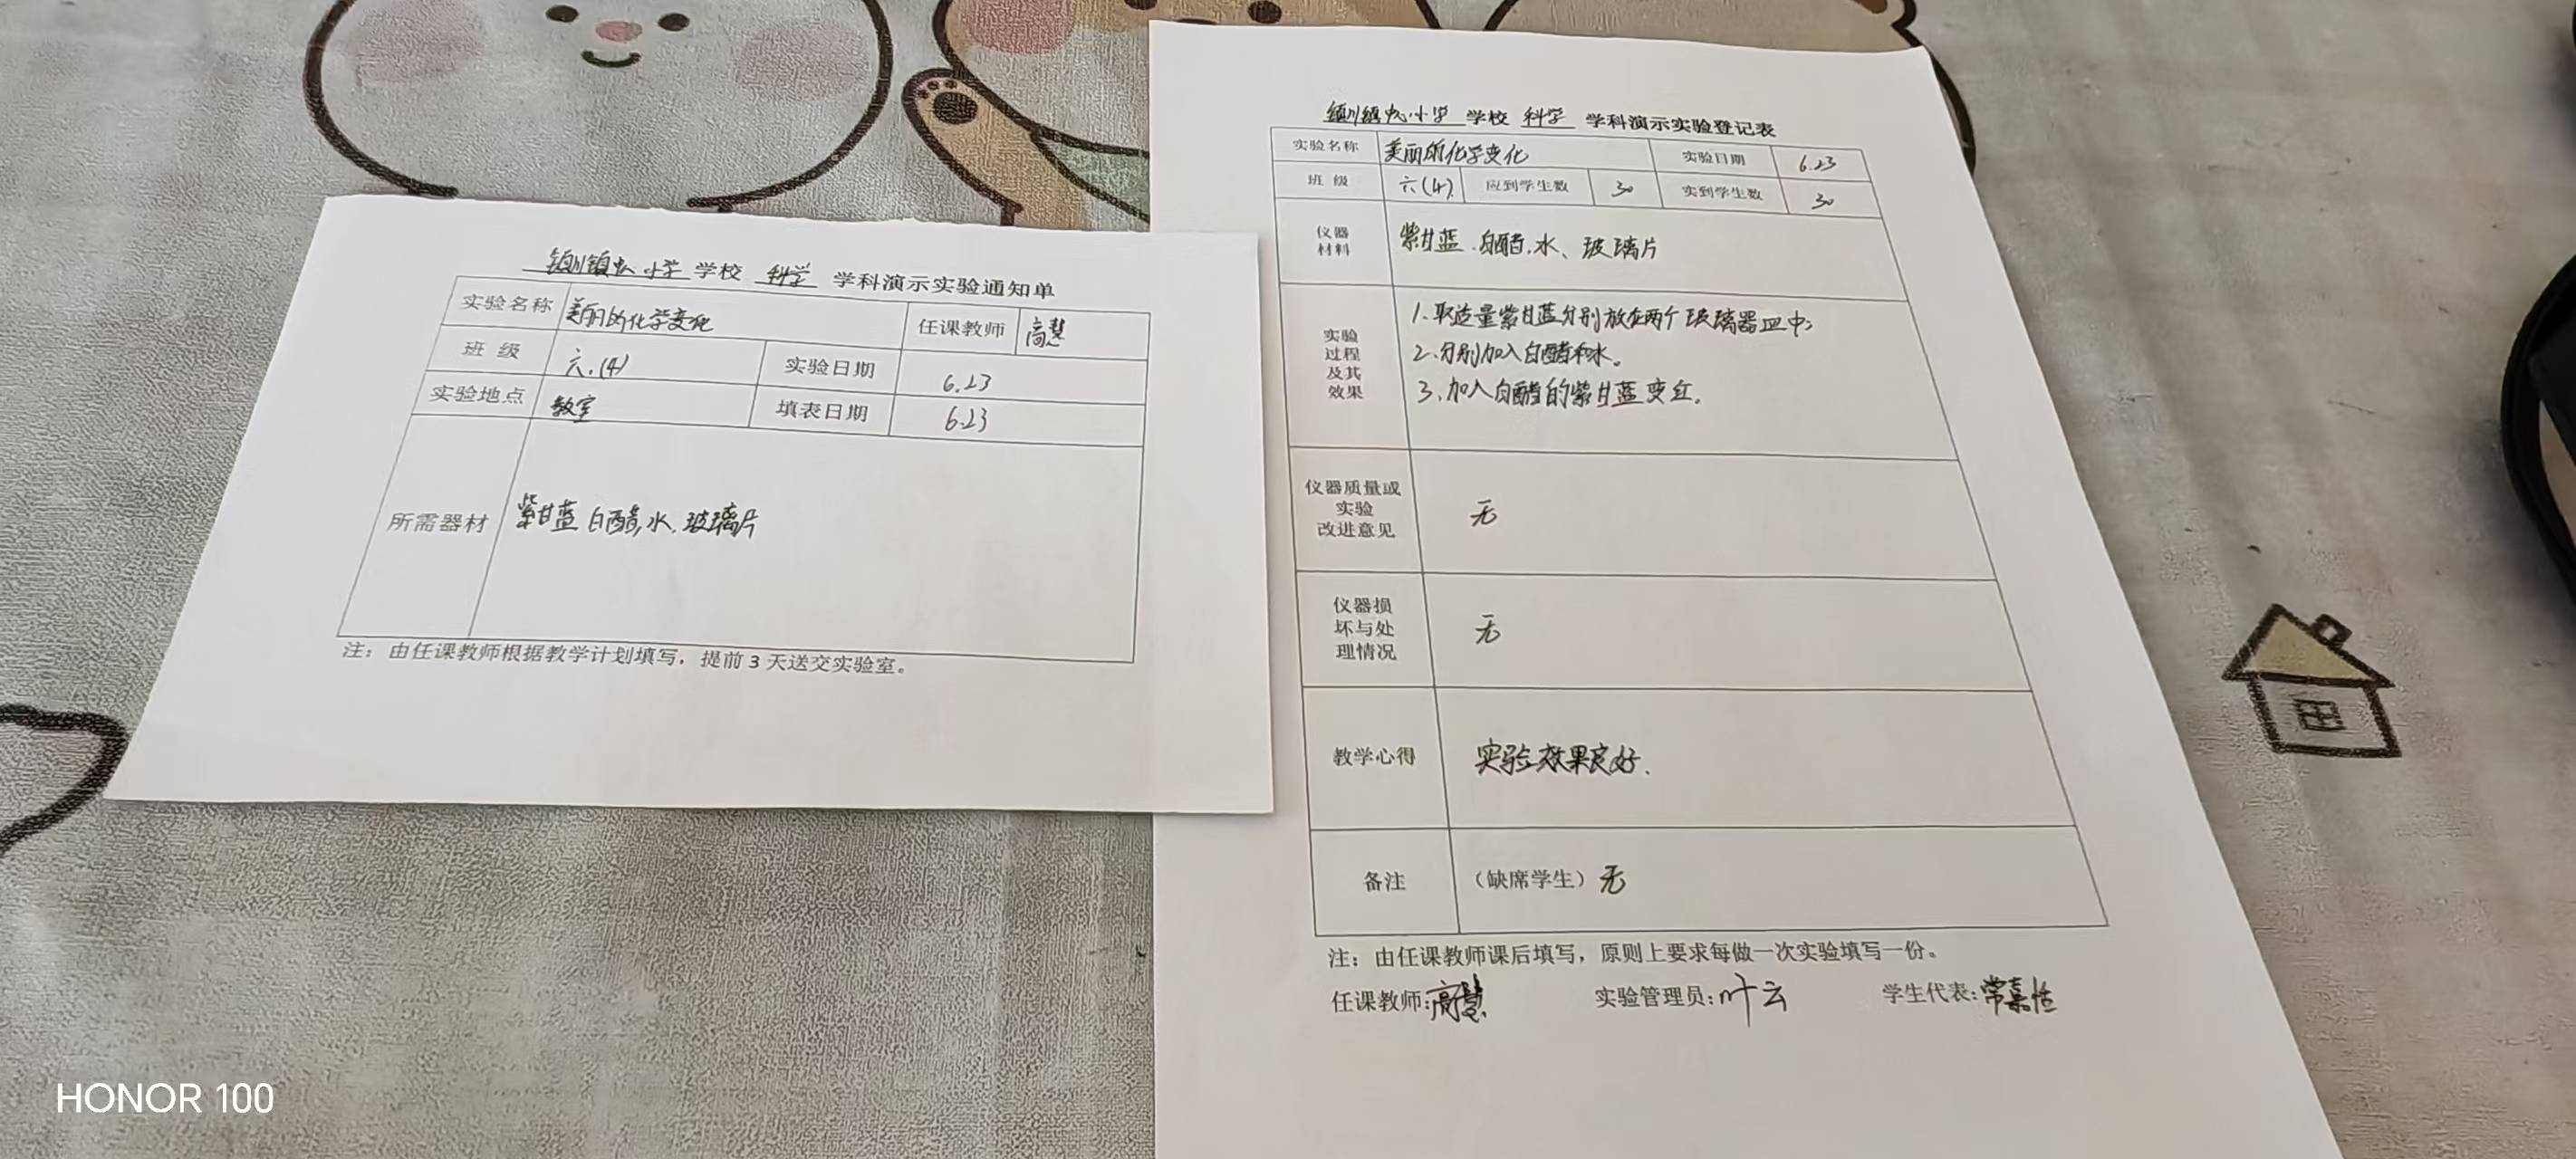 镇中心小学 学校 科学 学科演示实验通知单
实验名称 美丽的化学变化 任课教师 高慧
班 级 六.(4) 实验日期 6.23
实验地点 教室 填表日期 6.23
所需器材 紫甘蓝 白醋,水.玻璃片
注：由任课教师根据教学计划填写，提前 3 天送交实验室。
小学 学校 科学 学科演示实验登记表
实验名称 美丽的化学变化 实验日期 6.23
班 级 六(4) 应到学生数 30 实到学生数 30
仪器
材料
紫甘蓝.白醋.水、玻璃片
实验
过程
及其
效果
1.取适量紫甘蓝分别放在两个玻璃器皿中;
2.分别加入白醋和水。
3.加入白醋的紫甘蓝变红.
仪器质量或
实验
改进意见
无
仪器损
坏与处
理情况
无
教学心得 实验效果良好.
备注 （缺席学生）无
注：由任课教师课后填写，原则上要求每做一次实验填写一份。
任课教师:高慧 实验管理员:叶云 学生代表:常嘉恬
HONOR 100